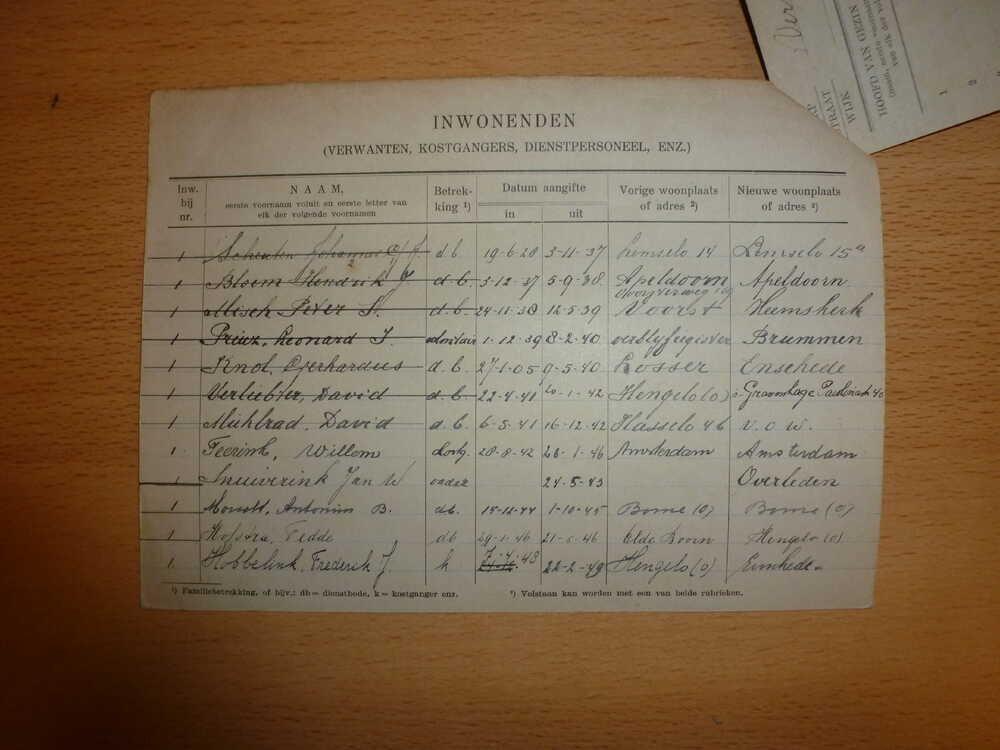 INWONENDEN
(VERWANTEN, KOSTGANGERS, DIENSTPERSONEEL, ENZ.)
Inw. bij nr. NAAM, eerste voornaam voluit en eerste letter van elk der volgende voornamen Betrekking ¹) Datum aangifte in uit Vorige woonplaats of adres ²) Nieuwe woonplaats of adres ²)
1 Johannes d.b. 19-6-28 3-11-37 Lemselo 14 Lemselo 15a
1 Bloem Hendrik d.b. 3-12-37 5-9-38 Apeldoorn Apeldoorn
1 Misch Peter S. d.b. 24-11-38 12-5-39 Voorst Heemskerk
1 Prinz, Leonard J. 1-12-39 8-2-40 Brummen
1 Knol, Gerhardus d.b. 27-1-05 9-5-40 Losser Enschede
1 Verliebter, David d.b. 22-4-41 20-1-42 Hengelo (o) 's Gravenhage
1 Mühlrad, David d.b. 6-5-41 16-12-42 Hasselo 46 v.o.w.
1 Feerink, Willem 28-8-42 26-1-46 Amsterdam Amsterdam
1 Snuiverink Jan W vader 24-5-43 Overleden
1 Antonius B. db. 1-10-45 Borne (o) Borne (o)
1 Hofstra, Fedde db 29-1-46 21-6-46 Olde Boorn Hengelo (o)
1. Hobbelink, Frederik J. k 7-4-48 22-2-49 Hengelo (o) Enschede
¹) Familiebetrekking, of bijv.: db = dienstbode, k = kostganger enz. ²) Volstaan kan worden met een van beide rubrieken.
HOOFD VAN GEZIN
WIJK
STRAAT
1
2